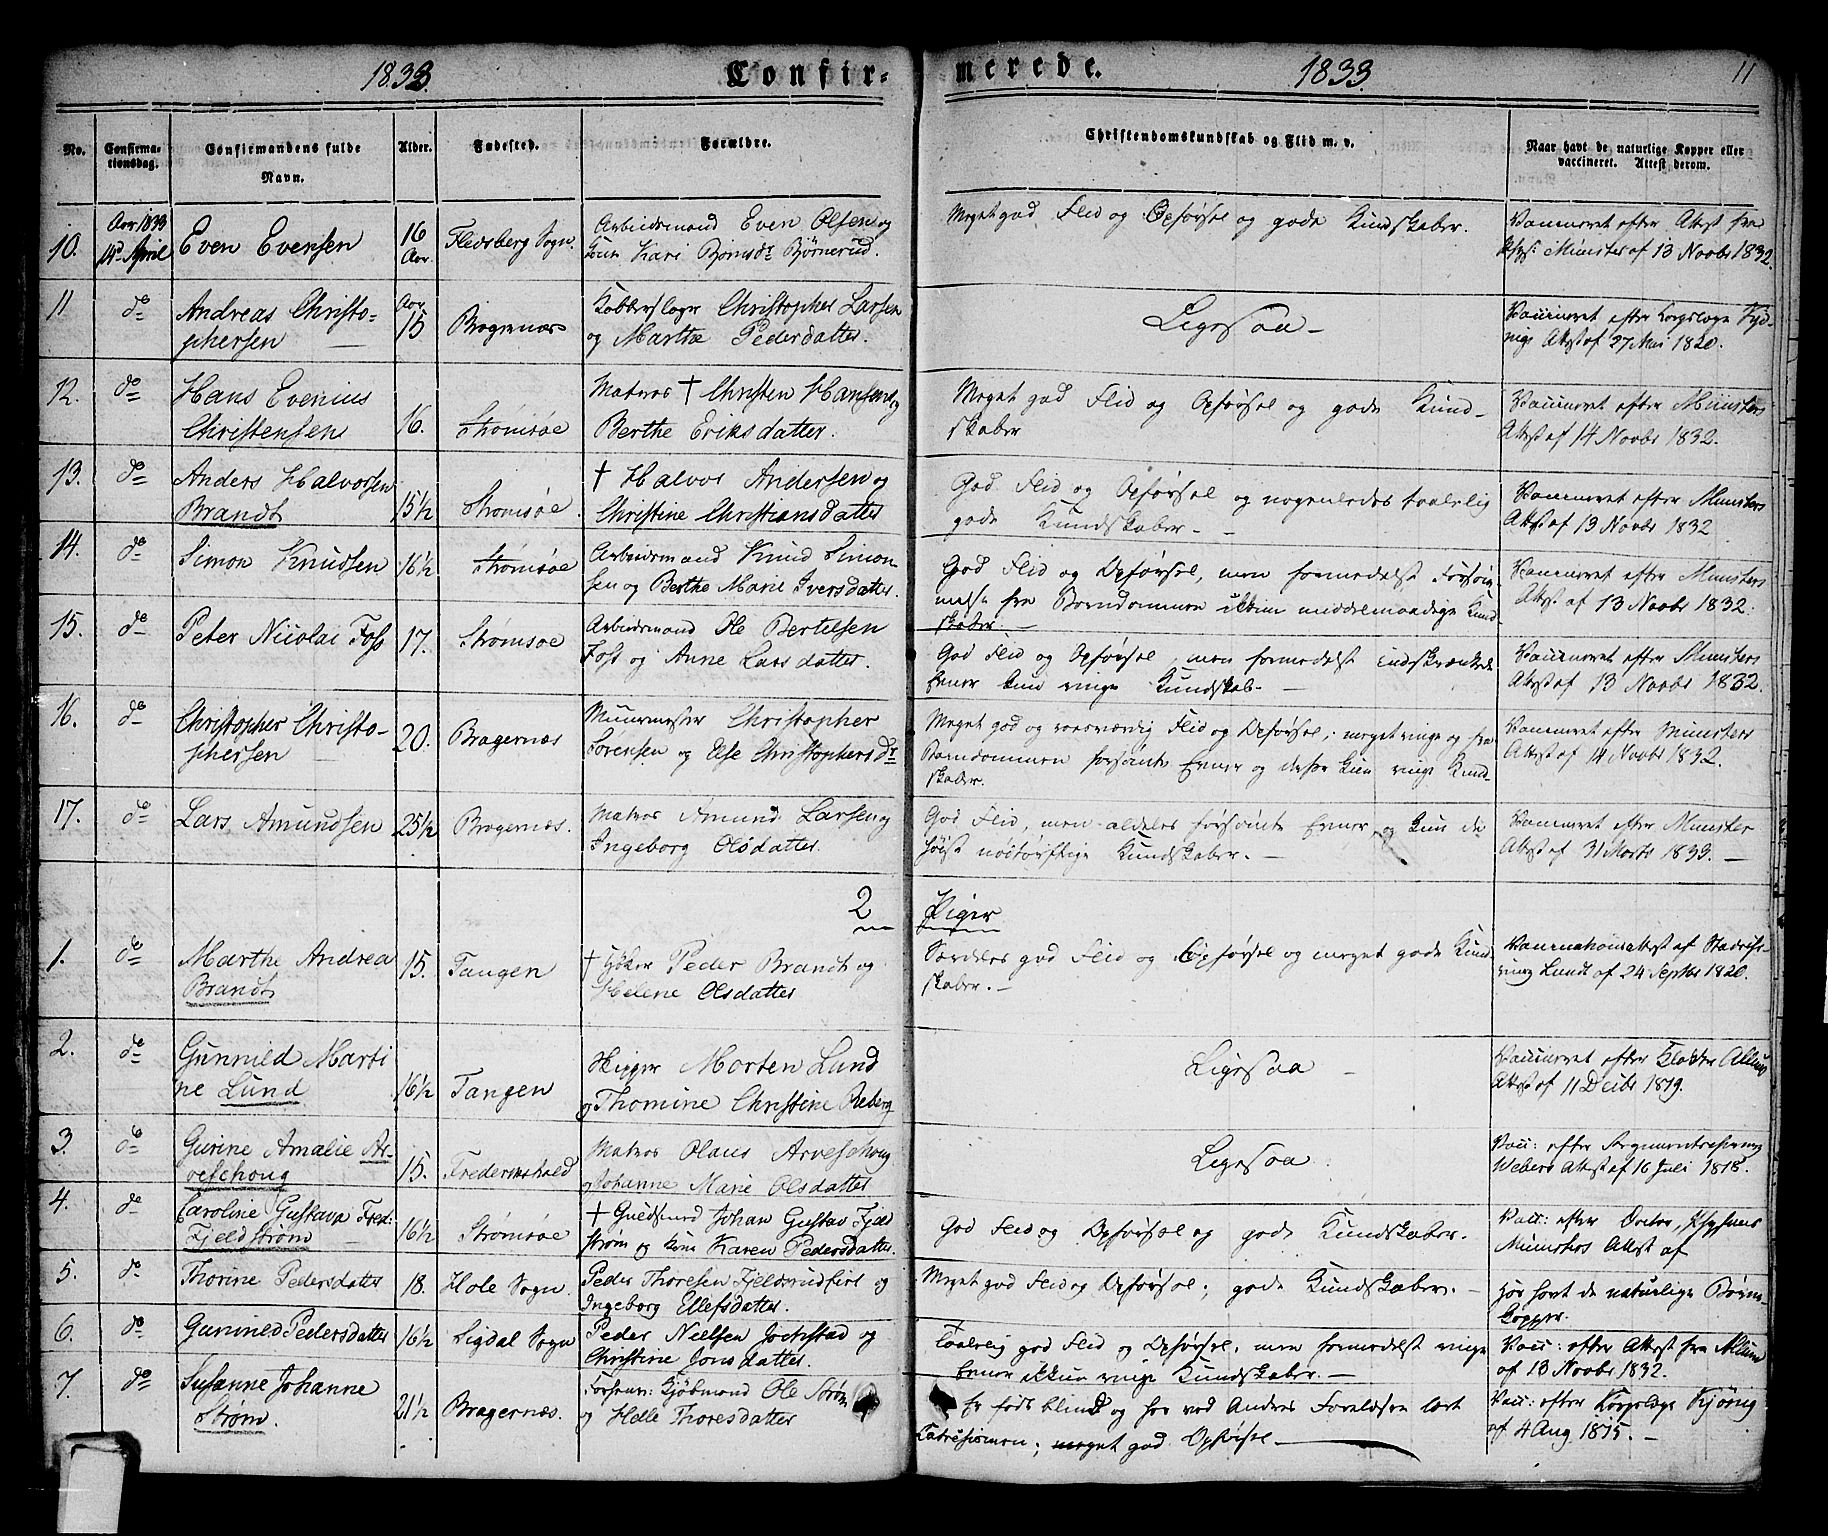 1833. Confirmerede. 1833. 11
No. Confirmationsdag. Confirmandens fulde Navn. Alder. Fødested. Forældre. Christendomskundskab og Flid m. v. Naar havt de naturlige Kopper eller vaccineret. Attest derom.
10. Aar 1833 14d April Even Evensen 16 Aar Flesberg Sogn. Arbeidsmand Even Olsen og
Kone Kari Bjørnsdr Bjørnerud.
Meget god Flid og Opførsel og gode Kundskaber.
Vaccineret efter Attest fra
Münster af 13 Novbr 1832.
11 do Andreas Christo-
phersen
Aar 15 Bragernæs
Kobberslager Christopher Larsen
og Marthe Pedersdatter.
Ligesaa
Vaccineret efter
Attest af 27 Mai 1820.
12. do Hans Evenius
Christensen
16. Strømsøe
Matros † Christen Hansen og
Berthe Eriksdatter.
Meget god Flid og Opførsel og gode Kund-
skaber
Vaccineret efter Münsters
Attest af 14 Novbr 1832.
13. do Anders Halvorsen
Brandt
15½ Strømsøe.
† Halvor Andersen og
Christine Christiansdatter
God Flid og Opførsel og nogenledes taalelig
gode Kundskaber.
Vaccineret efter Münsters
Attest af 13 Novbr 1832
14. do Simon Knudsen 16½ Strømsøe
Arbeidsmand Knud Simon-
sen og Berthe Marie Iversdatter.
God Flid og Opførsel, men formedelst Forsøm-
melse fra Barndommen ikkun middelmaadige Kund-
skaber.
Vaccineret efter Münsters
Attest af 13 Novbr 1832.
15. do Peter Nicolai Foss 17. Strømsøe
Arbeidsmand Ole Bertelsen
Foss og Anne Larsdatter.
God Flid og Opførsel, men formedelst indskrænkede
Evner kun ringe Kundskab.
Vaccineret efter Münsters
Attest af 13 Novbr 1832.
16. do Christopher Christo-
phersen
20. Bragernæs
Muurmester Christopher
Sørensen og Else Christophersdr
Meget god og roesværdig Flid og Opførsel, meget ringe og fra
Barndommen forsømte Evner og derfor kun ringe Kund-
skaber.
Vaccineret efter Münsters
Attest af 14 Novbr 1832.
17. do Lars Amundsen 25½ Bragernæs.
Matros Amund Larsen og
Ingeborg Olsdatter
God Flid, men aldeles forsømte Evner, og kun de
høist nødtørftige Kundskaber.
Vaccineret efter Münster
Attest af 31 Marts 1833.
2 Piger
1. do Marthe Andrea
Brandt
15. Tangen
† Høker Peder Brandt og
Helene Olsdatter
Særdeles god Flid og Opførsel og meget gode Kund-
skaber.
Vaccinationsattest af
Lundt af 24 Septbr 1820.
2. do Gunnild Marti
ne Lund
16½ Tangen
Skipper Morten Lund
og Thomine Christine Reberg
Ligesaa
Vaccineret efter
Attest af 11 Decbr 1819.
3. do Gurine Amalie Ar-
veschoug
15. Fredrikshald
Matros Olaus Arveschoug
og Johanne Marie Olsdatter
Ligesaa
Vacc: efter
Webers Attest af 16 Juli 1818.
4. do Caroline Gustava Fred:
Fjeldstrøm
16½ Strømsøe
† Guldsmed Johan Gustav Fjeld
strøm og Kone Karen Pedersdatter.
God Flid og Opførsel og gode Kundskaber.
Vacc: efter Doctor, Physicus
Münsters Attest af
5. do Thorine Pedersdatter 18. Hole Sogn.
Peder Thoresen og
Ingeborg Ellefsdatter.
Meget god Flid og Opførsel; gode Kundskaber.
har havt de naturlige Børne-
kopper.
6. do Gunnild Pedersdatter 16½ Sigdal Sogn
Peder Nielsen Jochstad og
Christine Jonsdatter.
Taalelig god Flid og Opførsel, men formedelst ringe
Evner ikkun ringe Kundskaber.
Vacc: efter Attest fra
af 13 Novbr 1832.
7. do Susanne Johanne
Strøm.
21½ Bragernæs.
Kjøbmand Ole Strøm
og Helle Thoresdatter
Er født blind og har ved Andres Forelæsen lært
Catechismen; meget god Opførsel
Vacc: efter
af 4 Aug 1815.